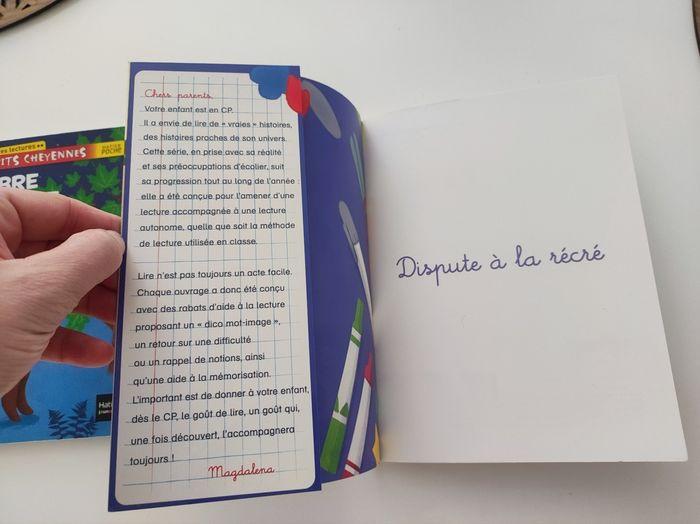 es lectures
ITS CHEYENNES
HATIER
POCHE
BRE
Chers parents
Votre enfant est en CP.
Il a envie de lire de « vraies » histoires,
des histoires proches de son univers.
Cette série, en prise avec sa réalité
et ses préoccupations d'écolier, suit
sa progression tout au long de l'année :
elle a été conçue pour l'amener d'une
lecture accompagnée à une lecture
autonome, quelle que soit la méthode
de lecture utilisée en classe.
Lire n'est pas toujours un acte facile.
Chaque ouvrage a donc été conçu
avec des rabats d'aide à la lecture
proposant un « dico mot-image »,
un retour sur une difficulté
ou un rappel de notions, ainsi
qu'une aide à la mémorisation.
L'important est de donner à votre enfant,
dès le CP, le goût de lire, un goût qui,
une fois découvert, l'accompagnera
toujours !
Magdalena
Dispute à la récré